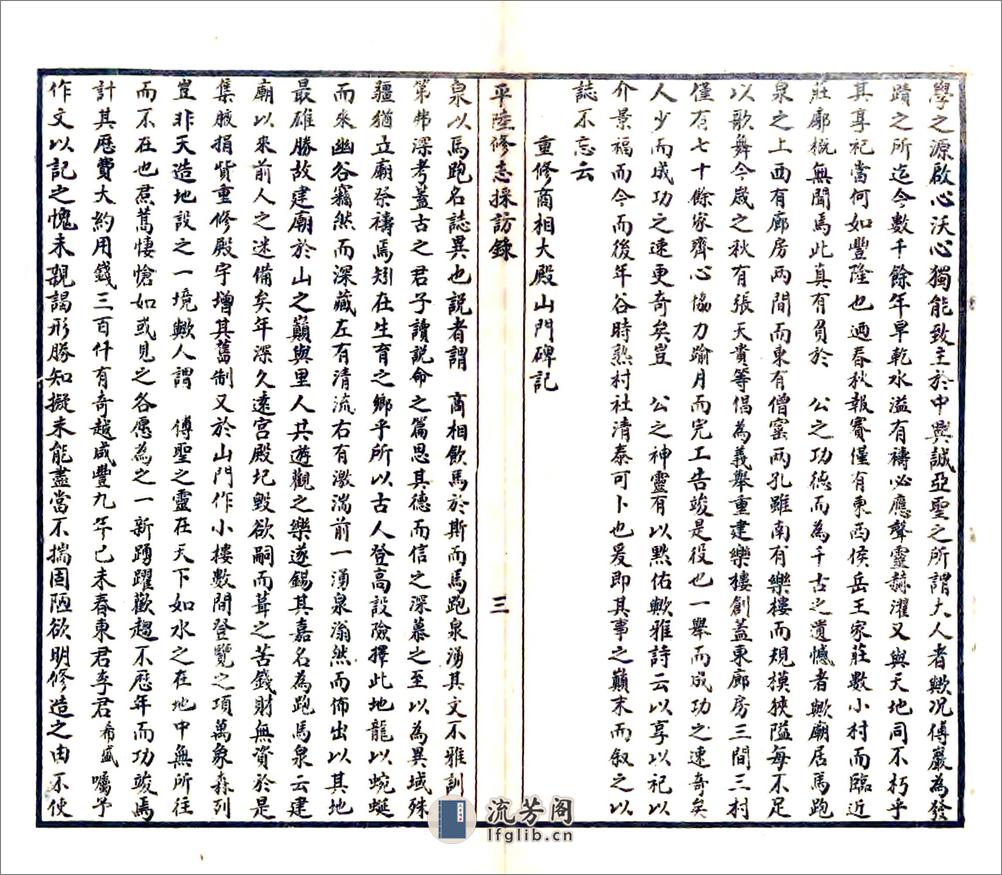 學之源啟心沃心獨能致主於中興誠亞聖之所謂大人者歟况傅巖為發
蹟之所迄今數千餘年旱乾水溢有禱必應聲靈赫濯又與天地同不朽乎
其享祀當何如豐隆也迺春秋報賽僅有東西侯岳王家莊數小村而臨近
莊廓概無聞焉此真有負於　公之功德而為千古之遺憾者歟廟居馬跑
泉之上西有廊房两間而東有僧窰两孔雖南有樂樓而規模狹隘每不足
以歌舞今歲之秋有張天貴等倡為義舉重建樂樓創蓋東廊房三間三村
僅有七十餘家齊心協力踰月而完工告竣是役也一舉而成功之速奇矣
人少而成功之速更奇矣豈　公之神靈有以黙佑歟雅詩云以享以祀以
介景福而今而後年谷時熟村社清泰可卜也爰即其事之巔末而叙之以
誌不忘云
重修商相大殿山門碑記
平陸修志採訪錄
三
泉以馬跑名誌異也説者謂　商相飲馬於斯而馬跑泉湧其文不雅訓
第弗深考蓋古之君子讀説命之篇思其德而信之深慕之至以為異域殊
疆猶立廟祭禱焉矧在生育之鄉乎所以古人登高設險擇此地龍以蜿蜒
而來幽谷竊然而深藏左有清流右有激湍前一湧泉滃然而佈出以其地
最雄勝故建廟於山之巔與里人共遊觀之樂遂錫其嘉名為跑馬泉云建
廟以來前人之述備矣年深久遠宫殿圮毁欲嗣而葺之苦錢財無資於是
集腋捐貲重修殿宇增其舊制又於山門作小樓數間登覽之項萬象森列
豈非天造地設之一境歟人謂　傅聖之靈在天下如水之在地中無所往
而不在也焄蒿悽愴如或見之各愿為之一新踴躍歡趨不歷年而功竣焉
計其歷費大約用錢三百仟有奇越咸豐九年己未春東君李君希盛囑予
作文以記之愧未親謁形勝知擬未能盡當不揣固陋欲明修造之由不使
流芳阁
lfglib.cn